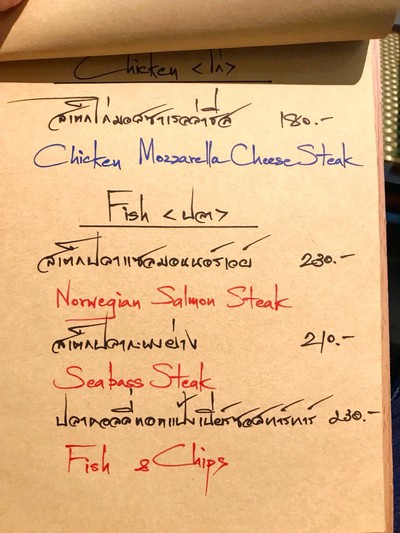 Chicken <ไก่>
สเต็กไก่มอสซาเรล่าชีส 180.-
Chicken Mozzarella Cheese Steak
Fish <ปลา>
สเต็กปลาแซลมอนนอร์เวย์ 230.-
Norwegian Salmon Steak
สเต็กปลากะพงย่าง 210.-
Seabass Steak
ปลาดอลลี่ทอดแป้งเบียร์ซอสทาร์ทาร์ 230.-
Fish & Chips